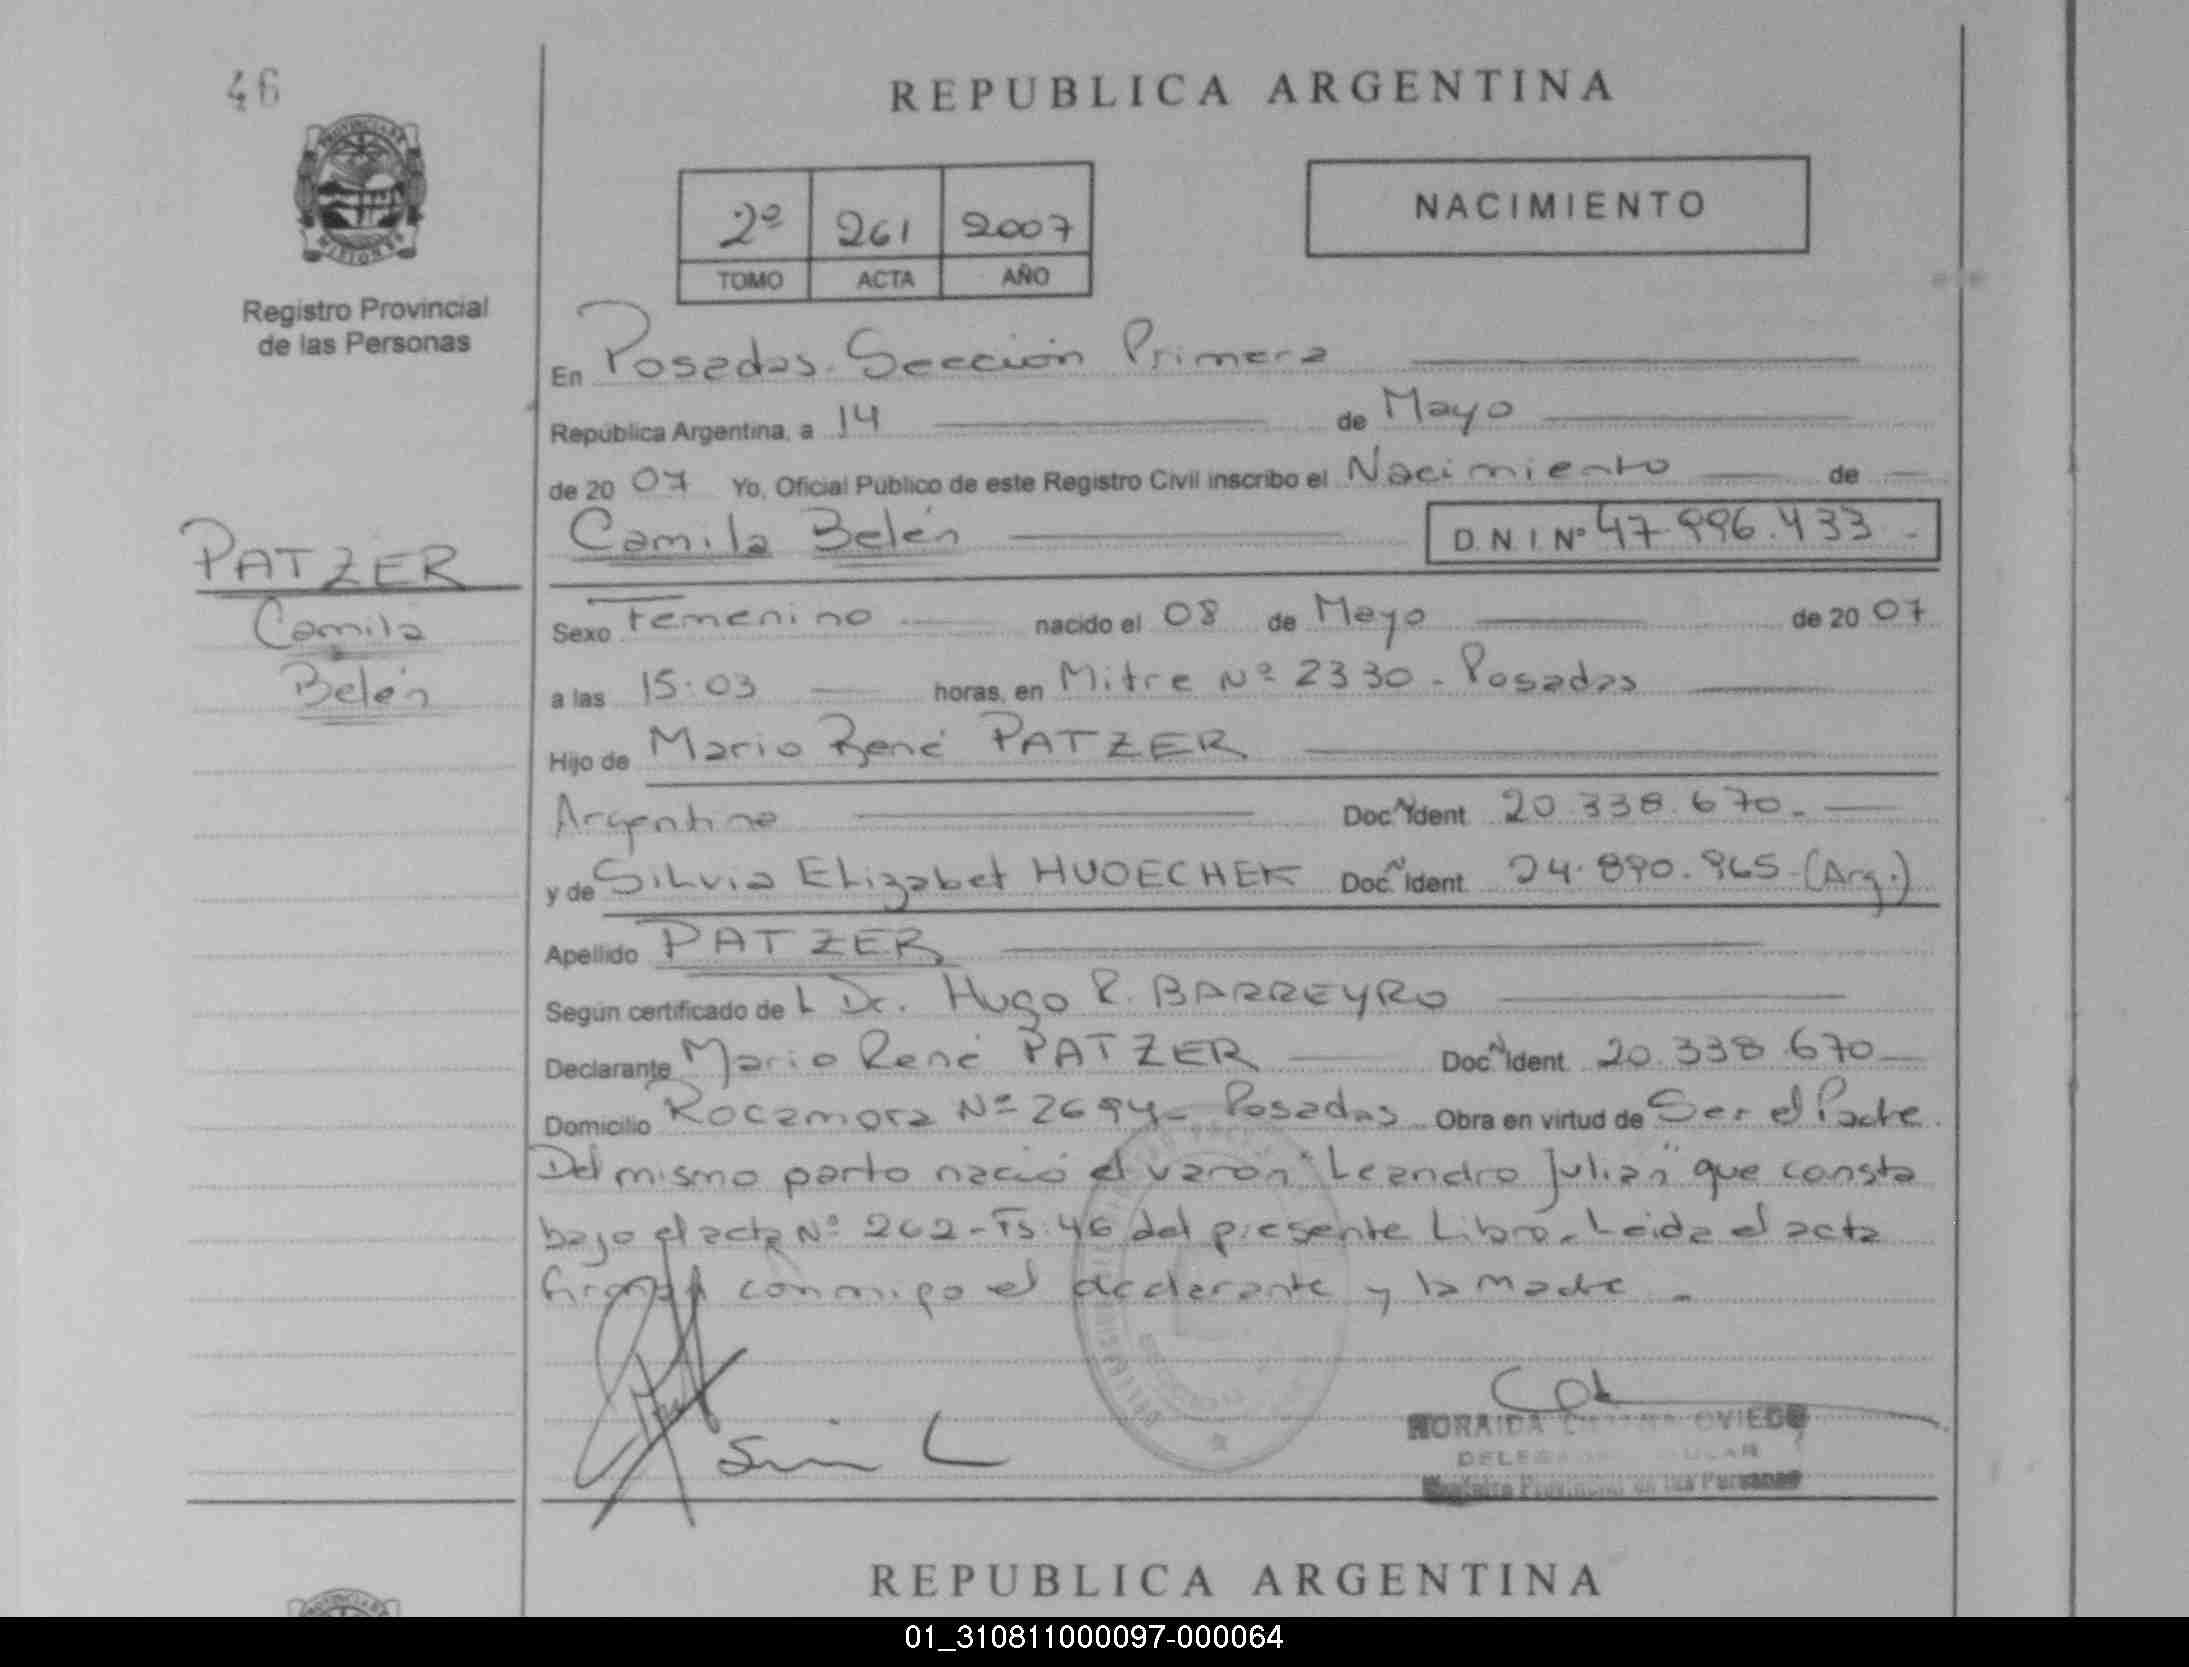 46
REPUBLICA ARGENTINA
PROVINCIA DE
MISIONES
2º 261 2007
TOMO ACTA AÑO
NACIMIENTO
Registro Provincial
de las Personas
En Posadas. Sección Primera
República Argentina, a 14 de Mayo
de 20 07 Yo, Oficial Público de este Registro Civil inscribo el Nacimiento de
Camila Belén D.N.I Nº 47.996.433 -
PATZER
Camila
Belén
Sexo Femenino nacido el 08 de Mayo de 20 07
a las 15:03 horas, en Mitre Nº 2330 - Posadas
Hijo de Mario René PATZER
Argentino Doc. N Ident 20.338.670.-
y de Silvia Elizabet HUOECHEK Doc. N Ident 24.890.965 (Arg.)
Apellido PATZER
Según certificado de L Dr. Hugo R. BARREYRO
Declarante Mario René PATZER Doc. N Ident. 20.338.670
Domicilio Rocamora Nº 2694- Posadas Obra en virtud de Ser el Padre.
Del mismo parto nació el varon "Leandro Julian" que consta
bajo el acta Nº 262 - Fs. 46 del presente Libro. Leida el acta
firman conmigo el declarante y la madre. -
OVIEDO
Registro Provincial de las Personas
REPUBLICA ARGENTINA
01_310811000097-000064